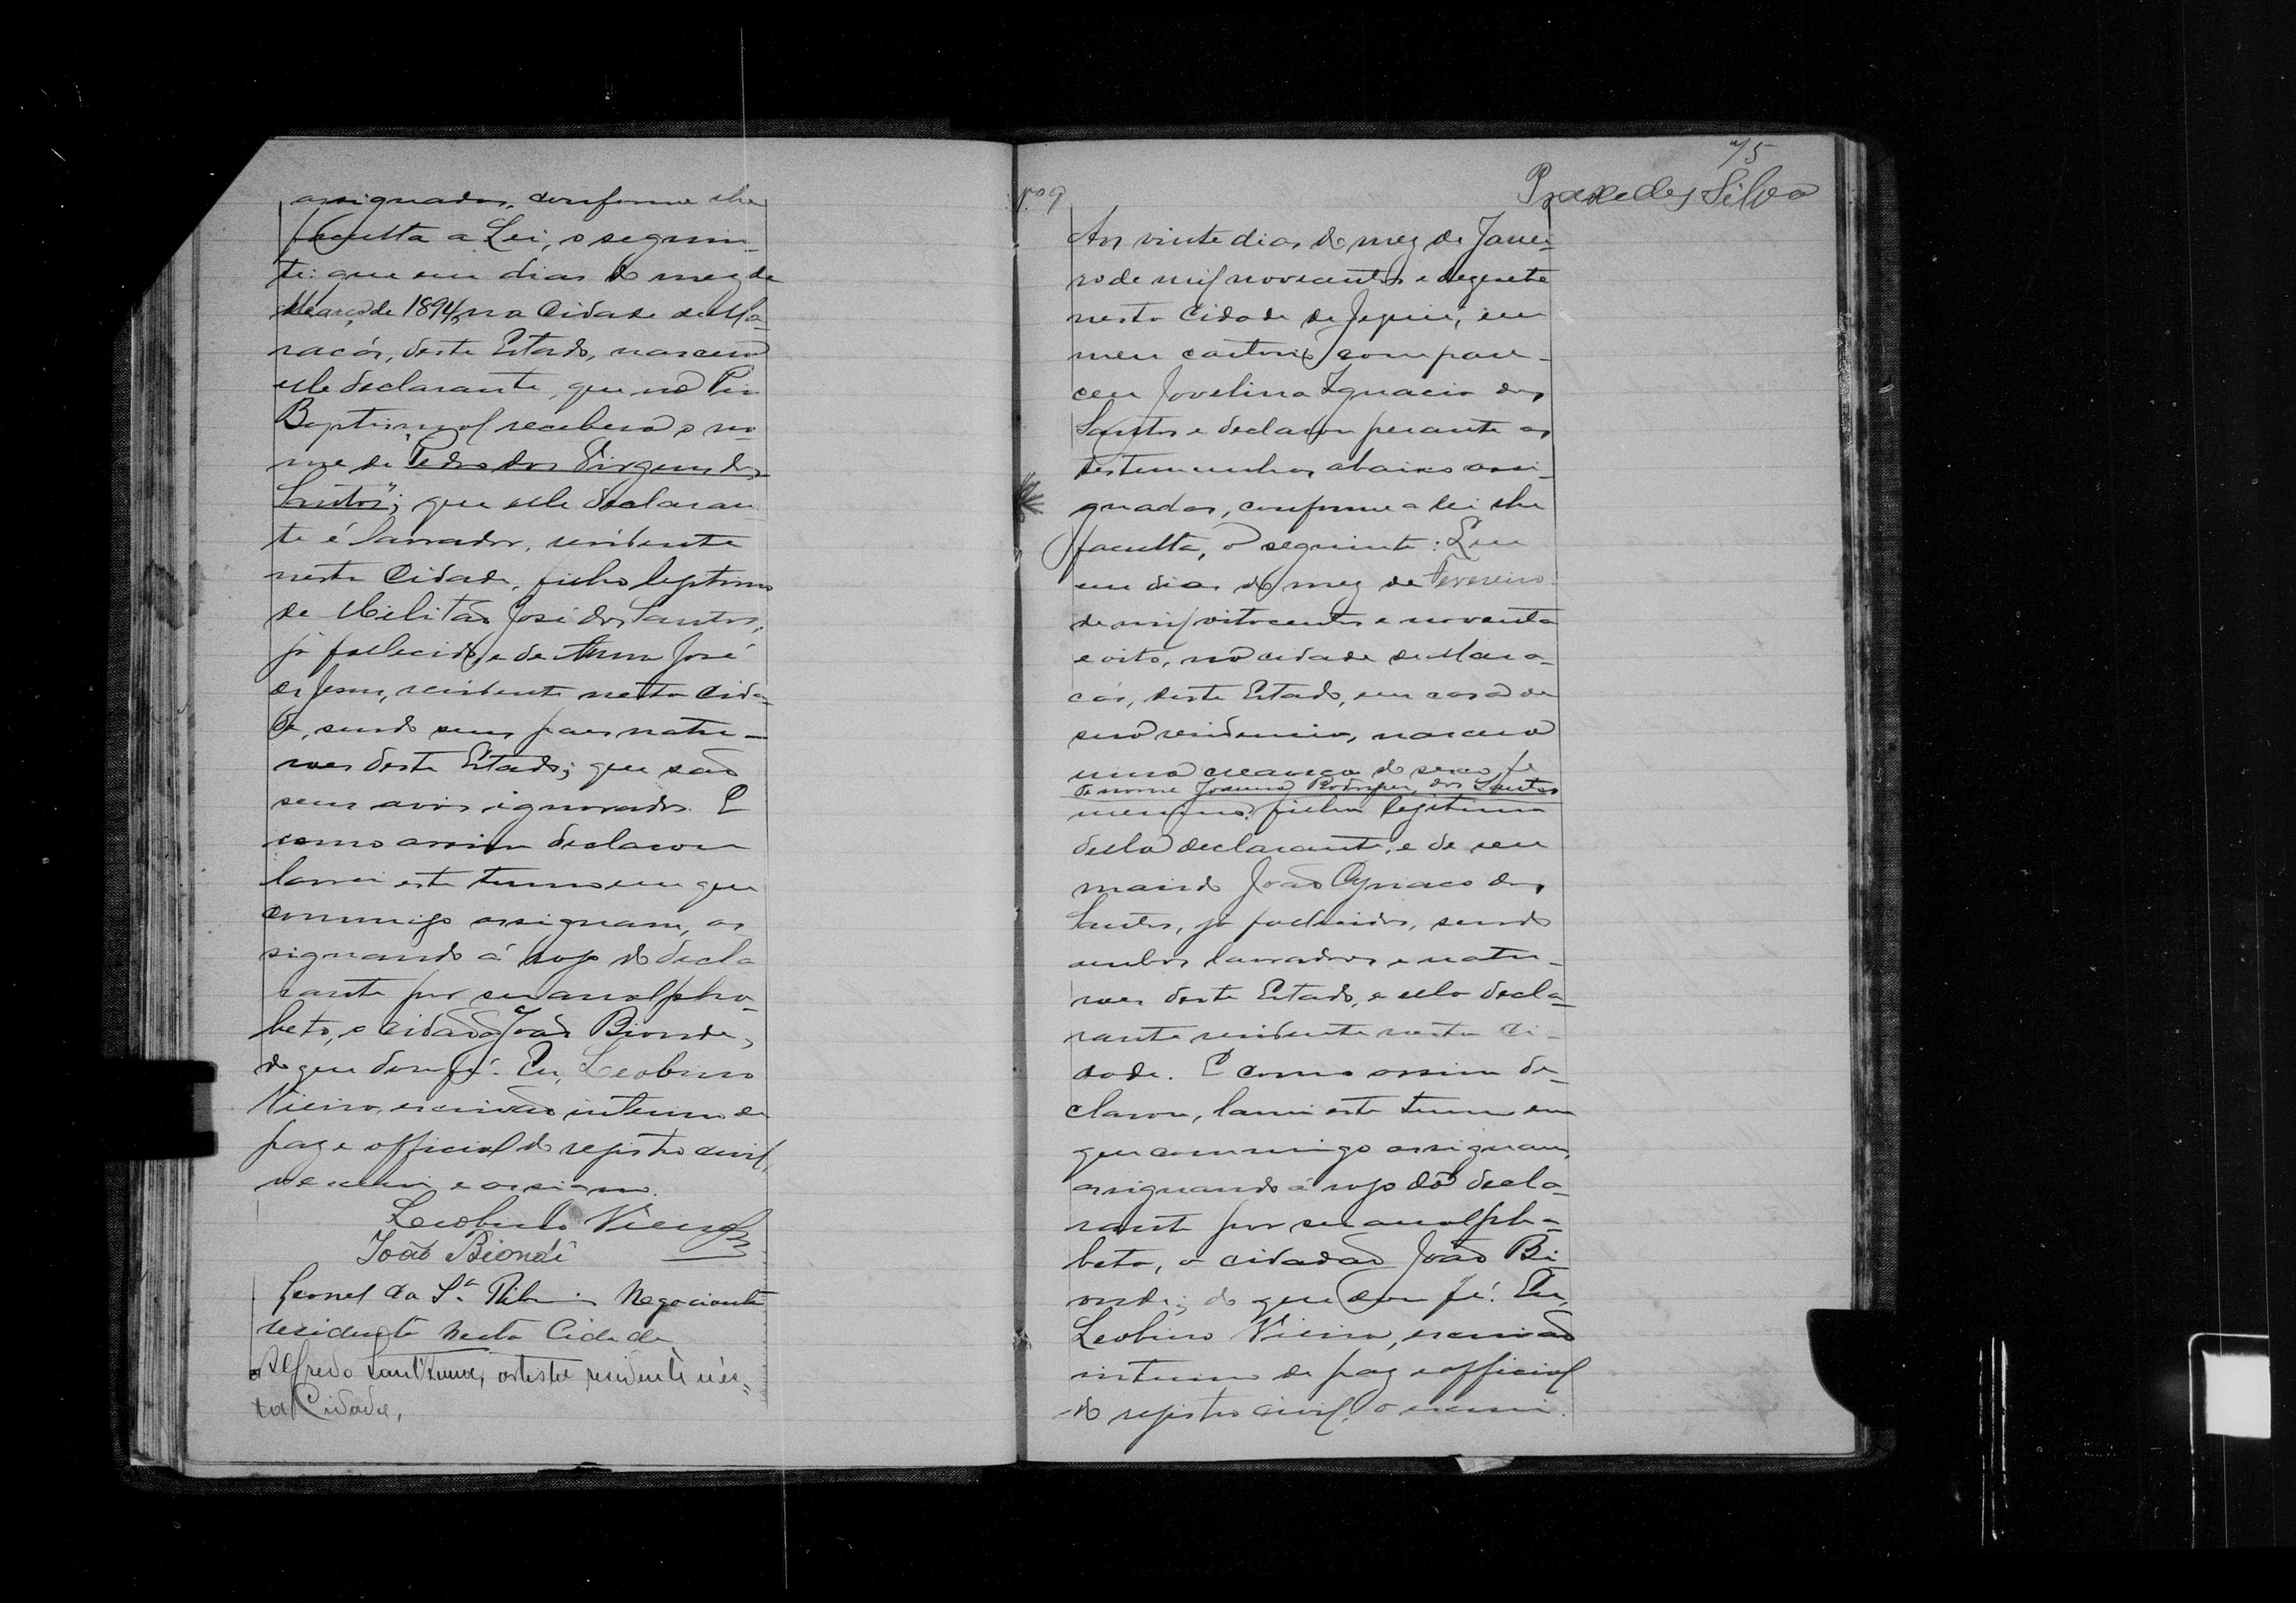 assignadas, conforme lhe
faculta a Lei, o seguin-
te: que em dias do mez de
Março de 1894, na Cidade de Ma-
racás, deste Estado, nasceu
elle declarante, que na Pia
Baptismal recebera o no-
me de "Pedro dos Virgens dos
Santos"; que elle declaran
te é lavrador, residente
nesta Cidade, filho legitimo
de Militão José dos Santos,
já fallecido, e de Anna José
de Jesus, residente nesta Cida-
de, sendo seus paes natu-
raes deste Estado; que são
seus avós ignorados. E
como assim declarou
lavrei este termo em que
commigo assignam, as
signando á rogo do decla
rante por ser analpha-
beto, o cidadão João Biondi,
do que dou fé. Eu, Leobino
Vieira, escrivão interino de
paz e official do registro civil,
o escrevi e assigno.
Leobino Vieira
João Biondi
Leonel da Sª Negociante
residente nesta Cidade
Alfredo Sant'Anna, artista residente n'es-
ta Cidade,
75
Praxedes Silva
Nº 9
Aos vinte dias do mez de Janei-
ro de mil novecentos e dezesete
nesta Cidade de Jequié, em
meu cartorio compare-
ceu Jovelina Ignacia dos
Santos e declarou perante as
testemunhas abaixo assi-
gnadas, conforme a lei lhe
faculta, o seguinte: Que
em dias do mez de Fevereiro
de mil oitocentos e noventa
e oito, na cidade de Mara-
cás, deste Estado, em casa de
sua residencia, nasceu
uma creança do sexo fe
de nome Josuina Rodrigues dos Santos
menino, filha legitima
della declarante, e de seu
marido João Cyriaco dos
Santos, já fallecido, sendo
ambos lavradores e natu-
raes deste Estado, e ella decla-
rante residente nesta Ci-
dade. E como assim de-
clarou, lavrei este termo em
que commigo assignam,
assignando á rogo da decla-
rante por ser analpha-
beta, o cidadão João Bi-
ondi; do que dou fé. Eu,
Leobino Vieira, escrivão
interino de paz e official
do registro civil, o escrevi.